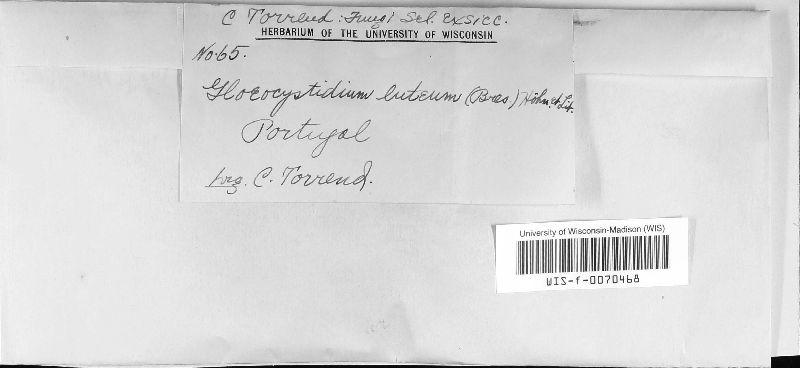 C Torrend: Fungi Sel. Exsicc.
HERBARIUM OF THE UNIVERSITY OF WISCONSIN
No. 65.
Gloeocystidium luteum (Bres.) Höhn. & Lit.
Portugal
Leg. C. Torrend.
University of Wisconsin-Madison (WIS)
WIS-f-0070468